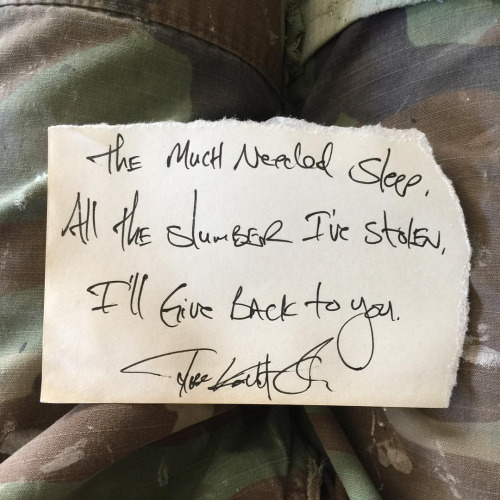 The Much Needed Sleep,
All the slumber I've stolen,
I'll Give back to you.